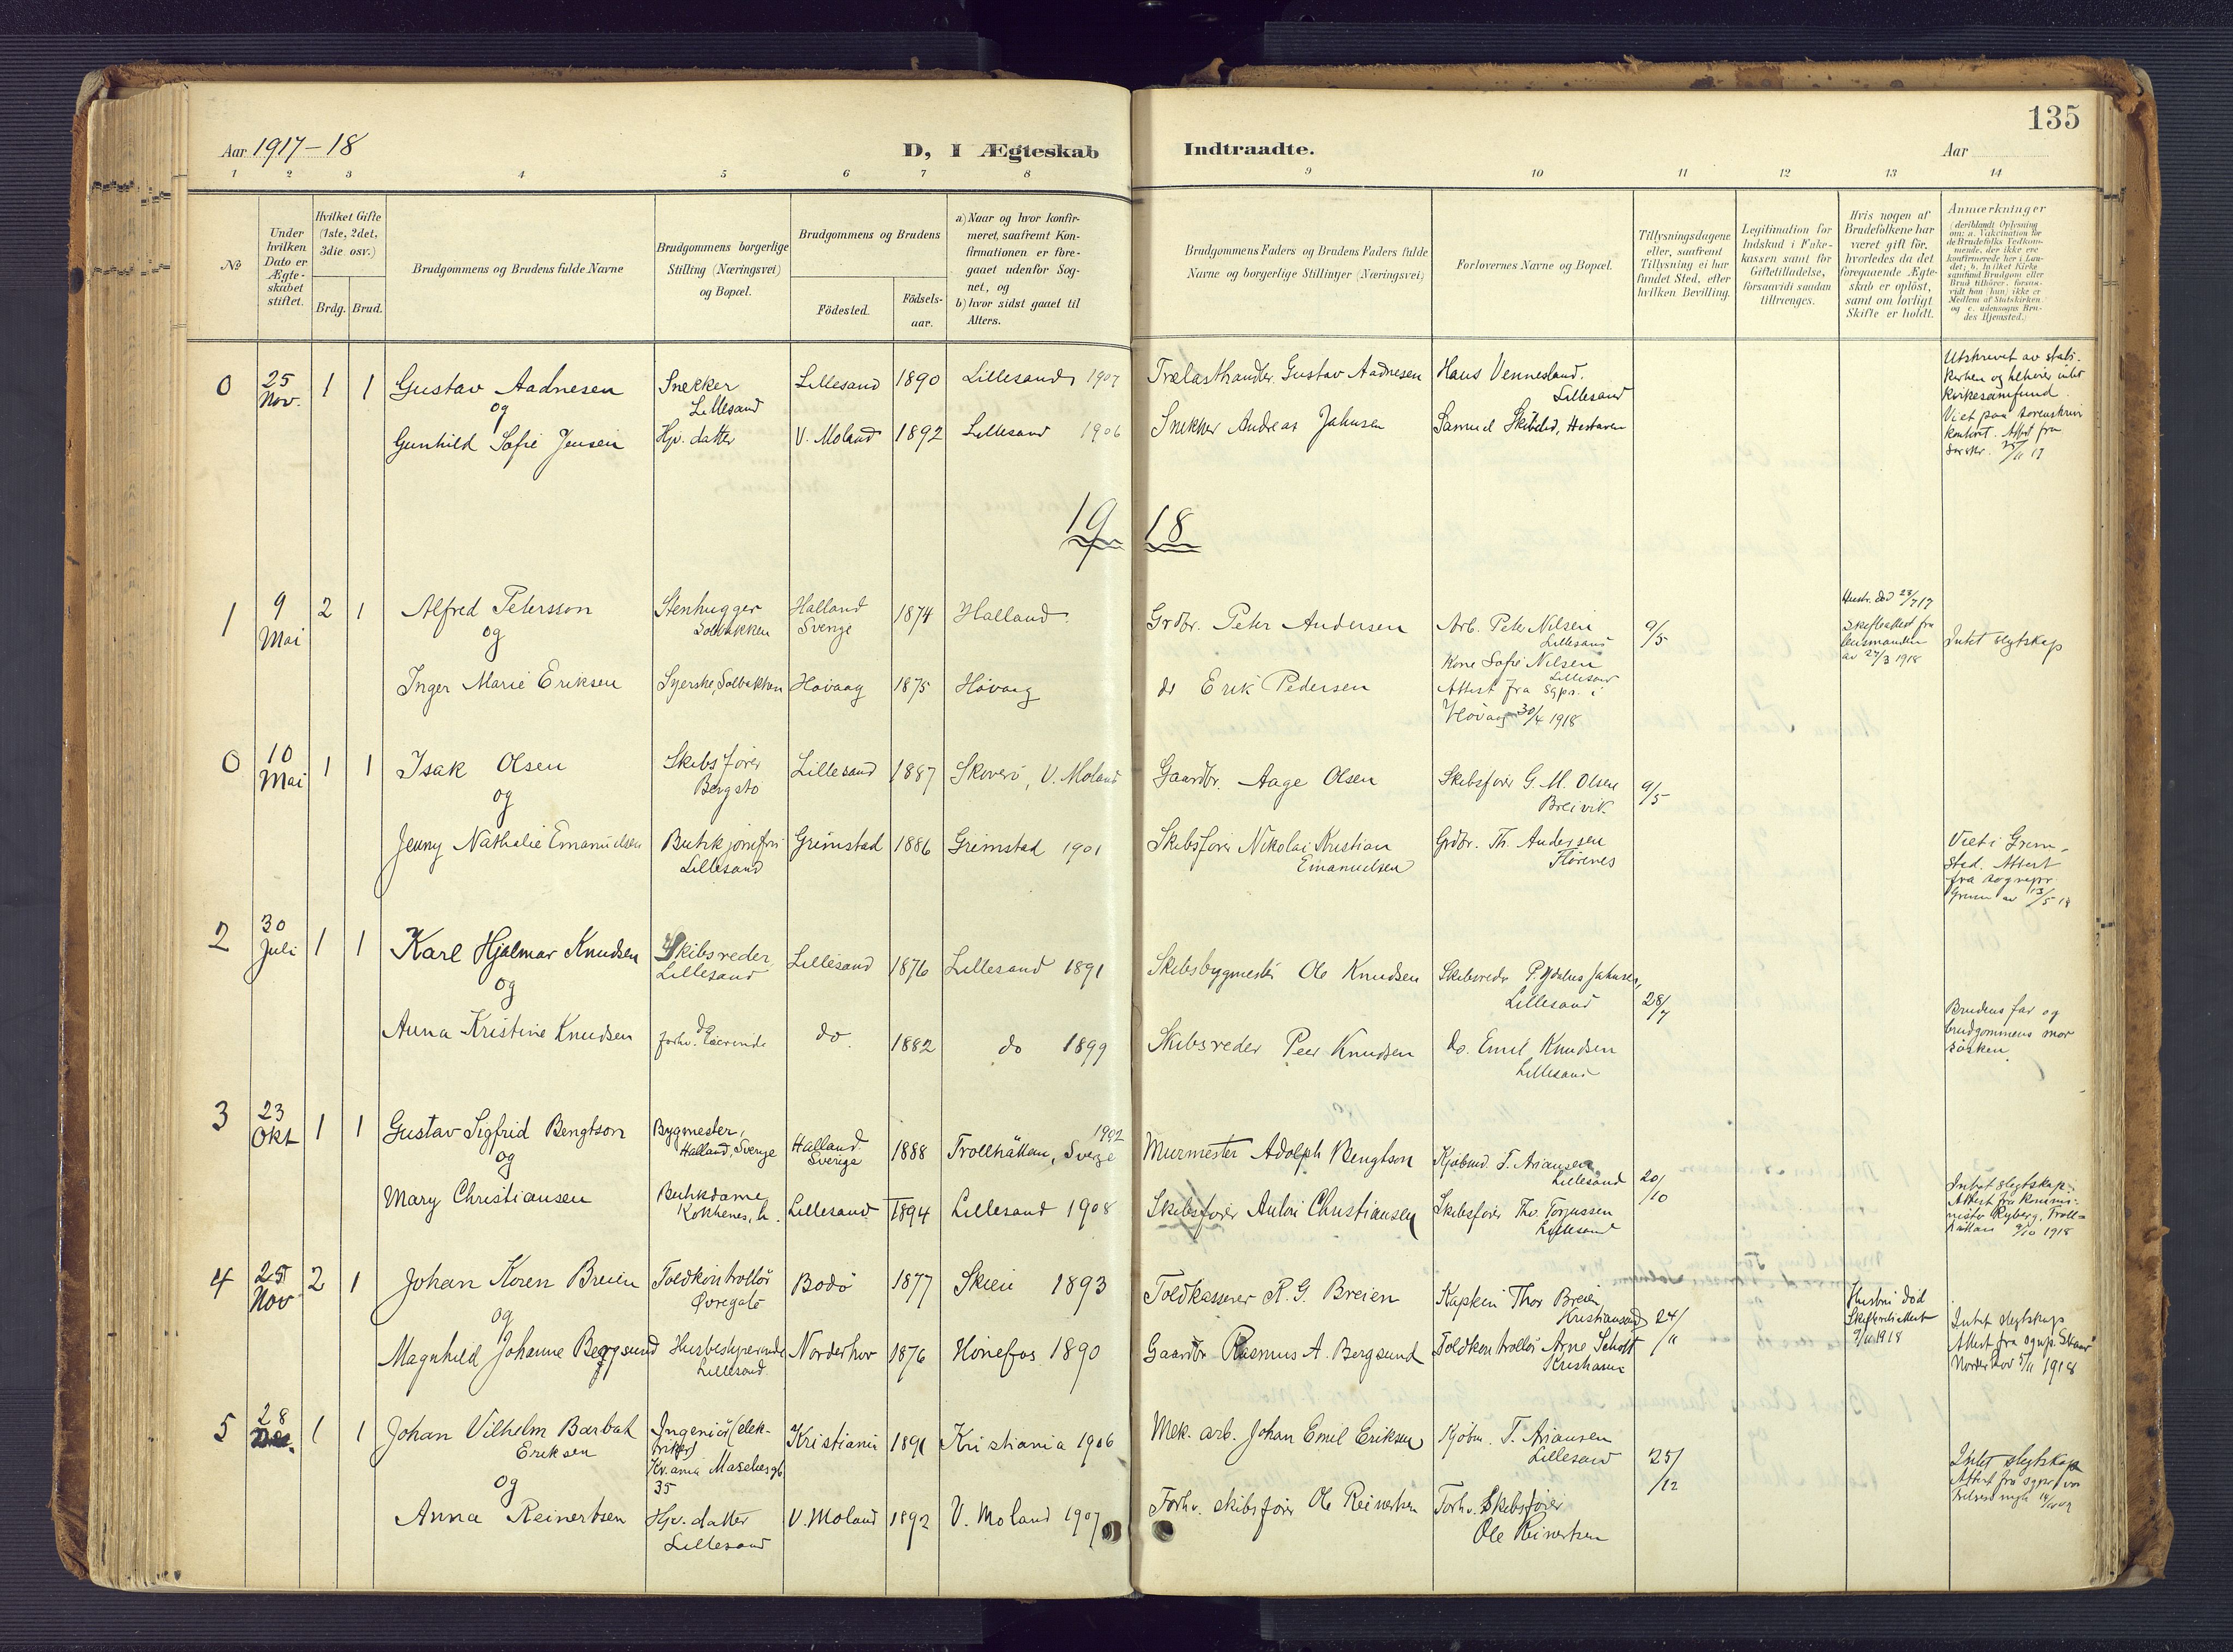 135
Aar 1917-18
D, I Ægteskab Indtraadte.
Aar
1 2 3 4 5 6 7 8 9 10 11 12 13 14
No
Under
hvilken
Dato er
Ægte-
skabet
stiftet.
Hvilket Gifte
(1ste, 2det,
3die osv.)
Brdg. Brud.
Brudgommens og Brudens fulde Navne
Brudgommens borgerlige
Stilling (Næringsvei)
og Bopæl.
Brudgommens og Brudens
Födested.
Födsels-
aar.
a) Naar og hvor konfir-
meret, saafremt Kon-
firmationen er fore-
gaaet udenfor Sog-
net, og
b) hvor sidst gaaet til
Alters.
Brudgommens Faders og Brudens Faders fulde
Navne og borgerlige Stillinger (Næringsvei)
Forlovernes Navne og Bopæl.
Tillysningsdagene
eller, saafremt
Tillysning ei har
fundet Sted, efter
hvilken Bevilling.
Legitimation for
Indskud i Enke-
kassen samt for
Giftetilladelse,
forsaavidt saadan
tiltrænges.
Hvis nogen af
Brudefolkene har
været gift för,
hvorledes da det
foregaaende Ægte-
skab er oplöst,
samt om lovligt
Skifte er holdt.
Anmærkninger
(deriblandt Oplysning
om: a. Vakcination for
de Brudefolks Vedkom-
mende, der ikke ere
konfirmerede her i Lan-
det; b. hvilket Kirke
samfund Brudgom eller
Brud tilhører, forsaa-
vidt han (hun) ikke er
Medlem af Statskirken
og c. udensogns Bru-
des Hjemsted.)
0 25 Nov. 1 1
Gustav Aadnesen
og
Gunhild Sofie Jensen
Snekker
Lillesand
Hjv. datter
Lillesand 1890 Lillesand 1907
V. Moland 1892 Lillesand 1906
Trælasthandler Gustav Aadnesen
Snekker Andreas Jahnsen
Hans Vennesland,
Lillesand
Samuel
Utskrevet av stats-
kirken og tilhører intet
kirkesamfund.
Viet paa sorenskriv
kontoret. Attest fra
19 18
1 9 Mai 2 1
Alfred Petersson
og
Inger Marie Eriksen
Stenhugger
Solbakken
Syerske, Solbakken
Halland
Sverige
1874 Halland.
Høvaag 1875 Høvaag
Grdbr. Peter Andersen
do Erik Pedersen
Arb. Peter Nilsen
Lillesand
Kone Sofie Nilsen
Lillesand
Attest fra Sgpr. i
Høvaag 30/4 1918
9/5
Hustr. død 23/7 17
Skifteattest fra
lensmanden
av 27/3 1918
Intet slegtskap
0 10 Mai 1 1
Isak Olsen
og
Jenny Nathalie Emanuelsen
Skibsfører
Bergstø
Butikjomfru
Lillesand
Lillesand 1887 Skoverø, V. Moland
Grimstad 1886 Grimstad 1901
Gaardbr. Aage Olsen
Skibsfører Nikolai Kristian
Emanuelsen
Skibsfører G. M. Olsen
Breivik
Grdbr. Th. Andersen
9/5
Viet i Grim-
stad. Attest
fra sognepr.
2 30 Juli 1 1
Karl Hjalmar Knudsen
og
Anna Kristine Knudsen
Skibsreder
Lillesand
do
Lillesand 1876 Lillesand 1891
do. 1882 do 1899
Skibsbygmester Ole Knudsen
Skibsreder Peer Knudsen
Skibsreder
Lillesand
do. Emil Knudsen
Lillesand
28/7
Brudens far og
brudgommens mor
søsken.
3 23 Okt 1 1
Gustav Sigfrid Bengtson
og
Mary Christiansen
Bygmester,
Halland, Sverige
Butikdame
Halland.
Sverige
1888 Trollhättan, Sverge 1902
Lillesand 1894 Lillesand 1908
Murmester Adolph Bengtson
Skibsfører Anton Christiansen
Kjøbmd. T. Ariansen,
Lillesand
Skibsfører Tho. Torjussen
Lillesand
20/10
Intet slegtskap.
Attest fra
Ryberg, Troll-
hättan 9/10 1918
4 25 Nov 2 1
Johan Koren Breien
og
Magnhild Johanne Bergsund
Toldkontrollör
Øvregate
Husbestyrerinde
Lillesand
Bodö 1877 Skien 1893
Norderhov 1876 Hönefos 1890
Toldkasserer R. G. Breien
Gaardbr Rasmus A. Bergsund
Kaptein Thor Breien
Kristiansand
Toldkontrollör Arne Schott
Kristiania
24/11
Hustru död
9/11 1918
Intet slegtskap
Attest fra
Norderhov 5/11 1918
5 28 Dec. 1 1
Johan Vilhelm Barbak
Eriksen
og
Anna Reinertsen
Ingeniör (elek-
triker)
35
Hjv. datter
Lillesand
Kristiania 1891 Kristiania 1906
V. Moland 1892 V. Moland 1907
Mek. arb. Johan Emil Eriksen
Forhv. skibsfører Ole Reinertsen
Kjöbm. T. Ariansen
Lillesand
Forhv. Skibsfører
Ole Reinertsen
25/12
Intet slegtskap